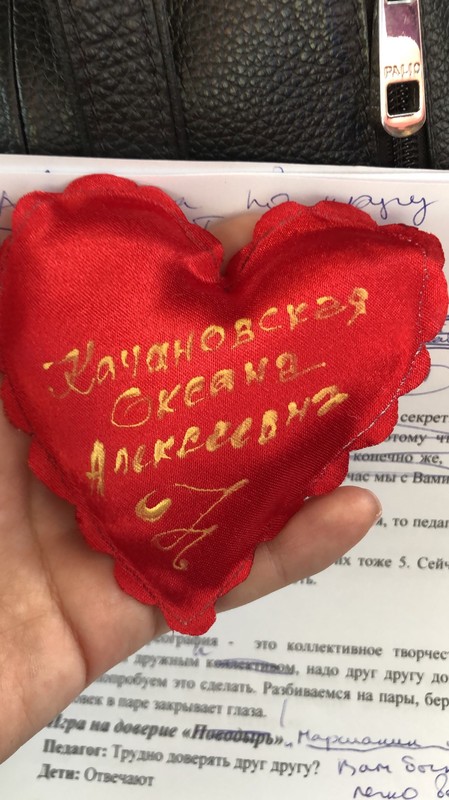 РАМО
по кругу
Качановская
Океана
Алексеевна
секрет
этому чт
конечно же,
час мы с Вами
, то педаг
их тоже 5. Сейч
ть.
это коллективное творчест
дружным коллективом, надо друг другу до
попробуем это сделать. Разбиваемся на пары, бер
ловек в паре закрывает глаза.
Игра на доверие «Поводырь»,
Педагог: Трудно доверять друг другу? Вам бы
Дети: Отвечают легко